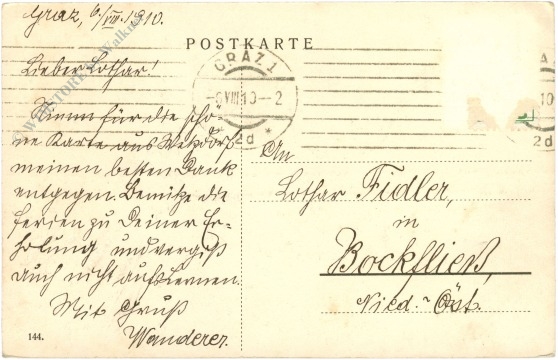 Graz, 6./VIII. 1910.
POSTKARTE
Lieber Lothar!
GRAZ 1
VIII 10 - 2
2d *
Nimm für die schö=
ne Karte aus Wetzdorf
meinen besten Dank
entgegen. Benütze die
Ferien zu Deiner Er=
holung und vergiß
auch nicht aufs Lernen.
Mit Gruß
Wanderer.
An
Lothar Fidler,
in
Bockfließ,
Nied.-Öst.
144.
A
10
2d